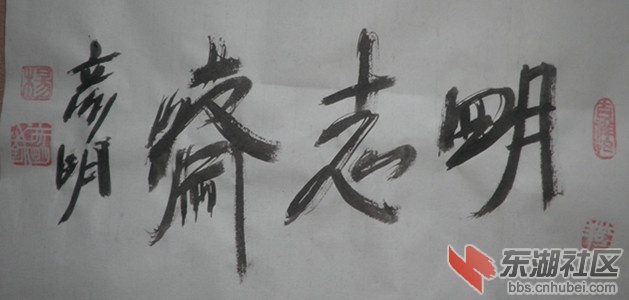 明志齋
彦明
楊
东湖社区
bbs.cnhubei.com